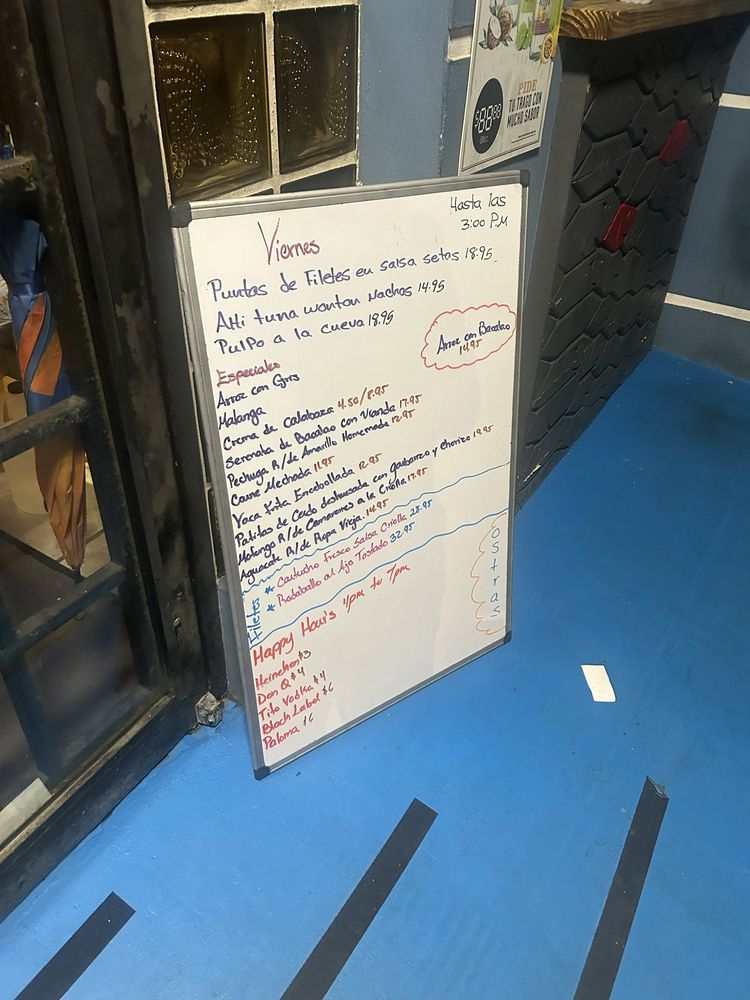 PIDE
TU TRAGO CON
MUCHO SABOR
$88.88
Hasta las
3:00 PM
Viernes
Puntas de Filetes en salsa setas 18.95
Ahi tuna wonton Nachos 14.95
Pulpo a la cueva 18.95
Arroz con Bacalao
14.95
Especiales
Arroz con Grns
Malanga
Crema de calabaza 4.50/8.95
Serenata de Bacalao con Vianda 17.95
Pechuga R/de Amarillo Homemade 12.95
Carne Mechada 11.95
Vaca Frita Encebollada 12.95
Patitas de Cerdo deshuesada con garbanzo y chorizo 19.95
Mofongo R/de Camarones a la Criolla 17.95
Aguacate R/de Ropa Vieja 14.95
Filetes
* Cartucho Fresco Salsa Criolla 28.95
* Rodaballo al Ajo Tostado 32.95
Ostras
Happy Hours 4pm to 7pm
Heineken $3
Don Q $4
Tito Vodka $4
Black Label $6
Paloma $6